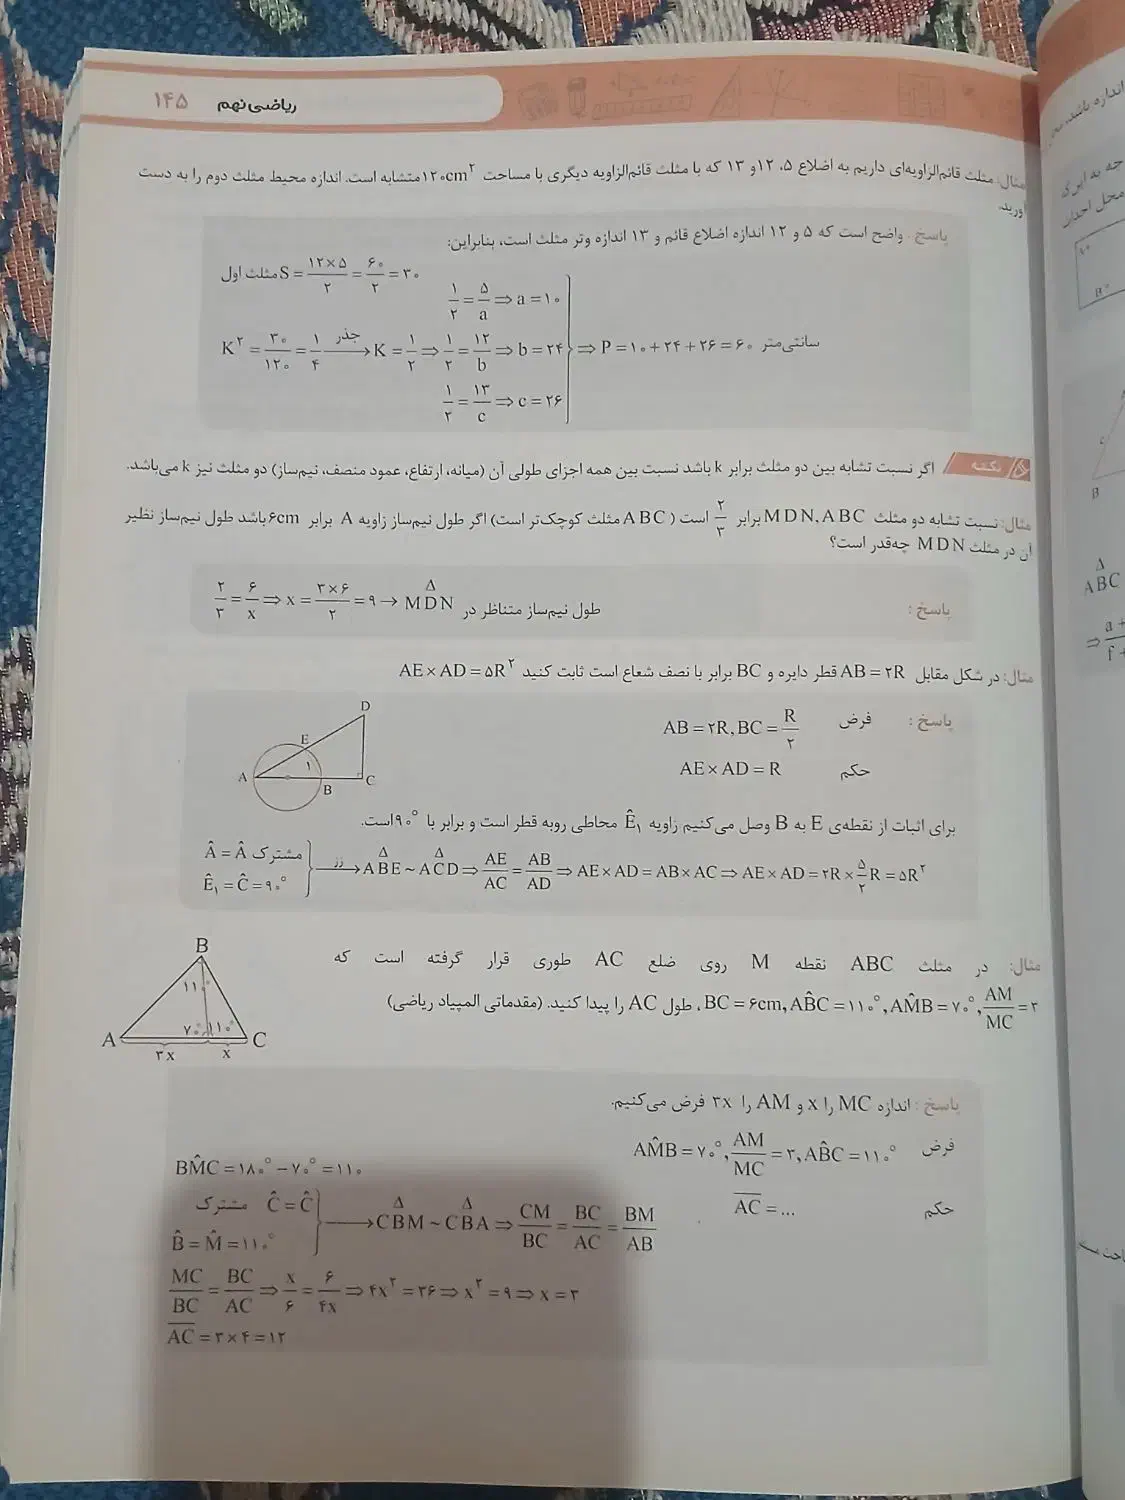 ریاضی نهم ۱۴۵
مثال: مثلث قائم‌الزاویه‌ای داریم به اضلاع ۵، ۱۲ و ۱۳ که با مثلث قائم‌الزاویه دیگری با مساحت ۱۲۰cm² متشابه است. اندازه محیط مثلث دوم را به دست
آورید.
پاسخ: واضح است که ۵ و ۱۲ اندازه اضلاع قائم و ۱۳ اندازه وتر مثلث است، بنابراین:
مثلث اول S = ۱۲×۵/۲ = ۶۰/۲ = ۳۰
۱/۲ = ۵/a ⇒ a = ۱۰
K² = ۳۰/۱۲۰ = ۱/۴ جذر → K = ۱/۲ ⇒ ۱/۲ = ۱۲/b ⇒ b = ۲۴ ⇒ P = ۱۰ + ۲۴ + ۲۶ = ۶۰ سانتی‌متر
۱/۲ = ۱۳/c ⇒ c = ۲۶
نکته اگر نسبت تشابه بین دو مثلث برابر k باشد نسبت بین همه اجزای طولی آن (میانه، ارتفاع، عمود منصف، نیم‌ساز) دو مثلث نیز k می‌باشد.
مثال: نسبت تشابه دو مثلث MDN, ABC برابر ۲/۳ است (ABC مثلث کوچک‌تر است) اگر طول نیم‌ساز زاویه A برابر ۶cm باشد طول نیم‌ساز نظیر
آن در مثلث MDN چه‌قدر است؟
پاسخ: طول نیم‌ساز متناظر در
۲/۳ = ۶/x ⇒ x = ۳×۶/۲ = ۹ → MDN Δ
مثال: در شکل مقابل AB = ۲R قطر دایره و BC برابر با نصف شعاع است ثابت کنید AE × AD = ۵R²
پاسخ: فرض AB = ۲R, BC = R/۲
حکم AE × AD = R
D
E
۱
A
B
C
برای اثبات از نقطه‌ی E به B وصل می‌کنیم زاویه Ê₁ محاطی روبه قطر است و برابر با ۹۰° است.
Â = Â مشترک
Ê₁ = Ĉ = ۹۰°
زز → ABE Δ ~ ACD Δ ⇒ AE/AC = AB/AD ⇒ AE × AD = AB × AC ⇒ AE × AD = ۲R × ۵/۲ R = ۵R²
مثال: در مثلث ABC نقطه M روی ضلع AC طوری قرار گرفته است که
AM/MC = ۳, AM̂B = ۷۰°, AB̂C = ۱۱۰°, BC = ۶cm، طول AC را پیدا کنید. (مقدماتی المپیاد ریاضی)
B
۱۱۰°
۷۰° ۱۱۰°
A
C
۳x x
پاسخ: اندازه MC را x و AM را ۳x فرض می‌کنیم.
فرض AM̂B = ۷۰°, AM/MC = ۳, AB̂C = ۱۱۰°
حکم AC = ...
BM̂C = ۱۸۰° − ۷۰° = ۱۱۰
Ĉ = Ĉ مشترک
B̂ = M̂ = ۱۱۰°
→ CBM Δ ~ CBA Δ ⇒ CM/BC = BC/AC = BM/AB
MC/BC = BC/AC ⇒ x/۶ = ۶/۴x ⇒ ۴x² = ۳۶ ⇒ x² = ۹ ⇒ x = ۳
AC = ۳ × ۴ = ۱۲
اندازه باشد،
جه به این‌که
محل احداث
B
C
ABC Δ